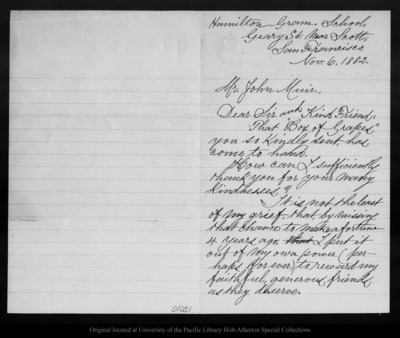 Hamilton Gram. School
Geary St. Near Scott,
San Francisco
Nov. 6, 1882.
Mr. John Muir.
Dear Sir and Kind Friend:
That "Box of Grapes"
you so kindly sent has
come to hand.
How can I sufficiently
thank you for your many
kindnesses?
It is not the least
of my grief that by missing
that chance to make a fortune
4 years ago that I put it
out of my own power (per-
haps for ever) to reward my
faithful, generous friends
as they deserve.
01091
Original located at University of the Pacific Library Holt-Atherton Special Collections